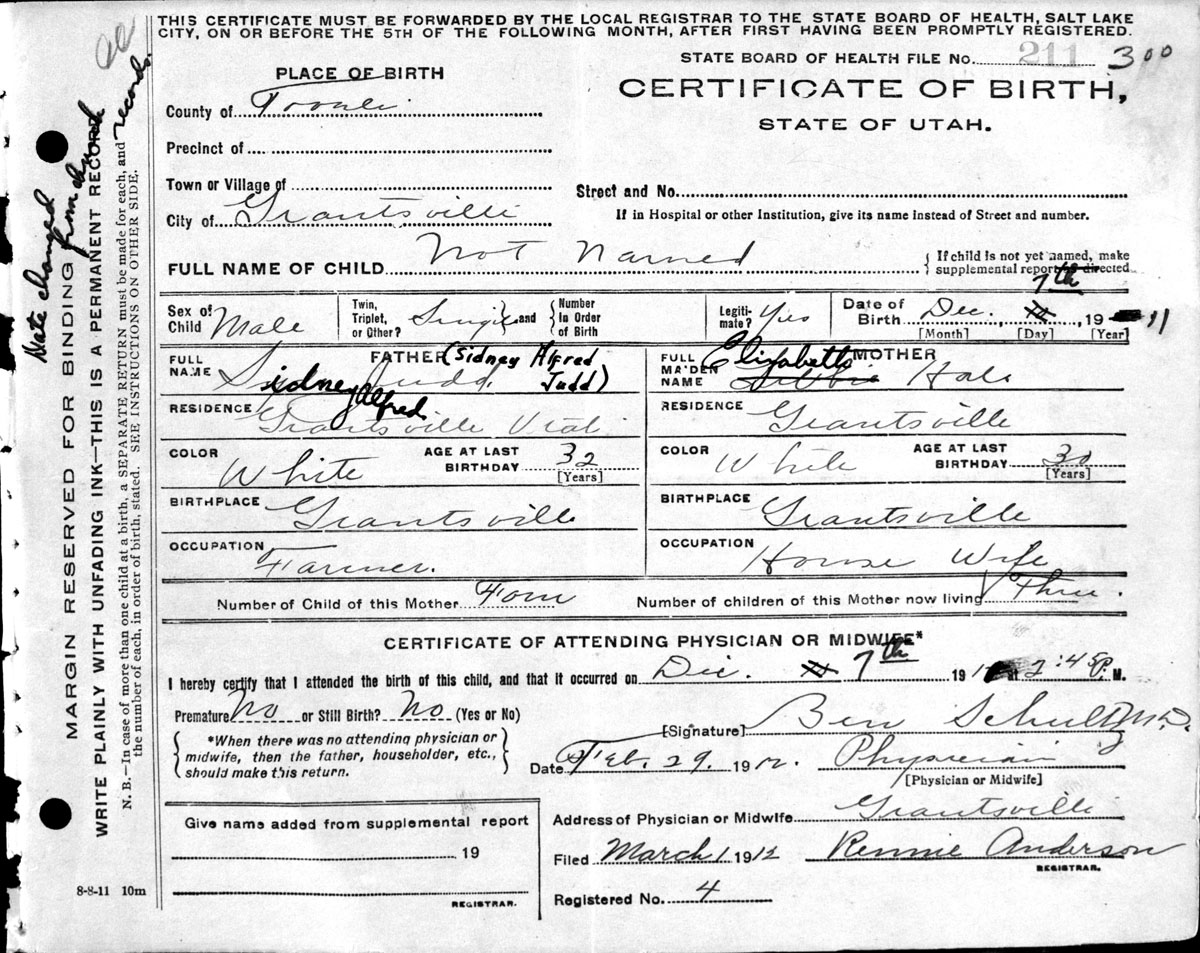 THIS CERTIFICATE MUST BE FORWARDED BY THE LOCAL REGISTRAR TO THE STATE BOARD OF HEALTH, SALT LAKE
CITY, ON OR BEFORE THE 5TH OF THE FOLLOWING MONTH, AFTER FIRST HAVING BEEN PROMPTLY REGISTERED.
STATE BOARD OF HEALTH FILE No. 211 300
PLACE OF BIRTH
CERTIFICATE OF BIRTH,
STATE OF UTAH.
County of Tooele
Precinct of
Town or Village of
Street and No.
City of Grantsville
If in Hospital or other Institution, give its name instead of Street and number.
FULL NAME OF CHILD Not Named
If child is not yet named, make
supplemental report as directed
Sex of Child Male
Twin, Triplet, or Other? Single and Number In Order of Birth
Legitimate? Yes
Date of Birth Dec. 7th, 19 11
[Month] [Day] [Year]
FATHER (Sidney Alfred Judd)
FULL NAME Sidney Alfred Judd
MOTHER
FULL MAIDEN NAME Elizabeth Hale
RESIDENCE Grantsville Utah
RESIDENCE Grantsville
COLOR White AGE AT LAST BIRTHDAY 32 [Years]
COLOR White AGE AT LAST BIRTHDAY 30 [Years]
BIRTHPLACE Grantsville
BIRTHPLACE Grantsville
OCCUPATION Farmer.
OCCUPATION House Wife
Number of Child of this Mother Four Number of children of this Mother now living Three.
CERTIFICATE OF ATTENDING PHYSICIAN OR MIDWIFE*
I hereby certify that I attended the birth of this child, and that it occurred on Dec. 7th 191 at 2:45 P. M.
Premature No or Still Birth? No (Yes or No)
*When there was no attending physician or
midwife, then the father, householder, etc.,
should make this return.
[Signature] Ben Schultz M.D.
Date Feb. 29. 1912. Physician
[Physician or Midwife]
Give name added from supplemental report
19
REGISTRAR.
Address of Physician or Midwife Grantsville
Filed March 1 1912 Rennie Anderson
REGISTRAR.
Registered No. 4
8-8-11 10m
Date changed from church records.
MARGIN RESERVED FOR BINDING
WRITE PLAINLY WITH UNFADING INK—THIS IS A PERMANENT RECORD
N. B.—In case of more than one child at a birth, a SEPARATE RETURN must be made for each, and
the number of each, in order of birth, stated. SEE INSTRUCTIONS ON OTHER SIDE.